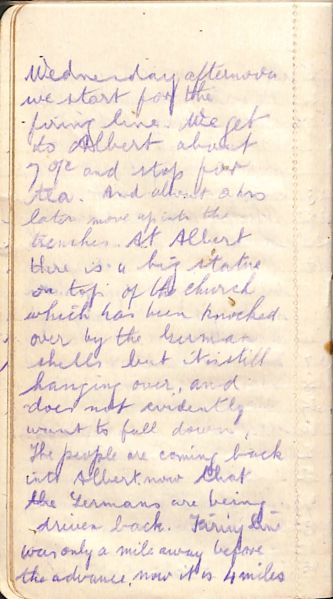 Wednesday afternoon
we start for the
firing line. We get
to Albert about
7 oc and stop for
tea. And about 2 hrs
later move up into the
trenches. At Albert
there is a big statue
on top of the church
which has been knocked
over by the German
shells but it is still
hanging over, and
does not evidently
want to fall down,
The people are coming back
into Albert now that
the Germans are being
driven back. Firing line
was only a mile away before
the advance, now it is 4 miles